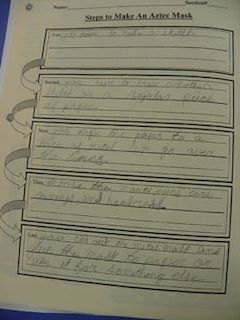 Name: Section#
Steps to Make An Aztec Mask
First, you have to make a sketch
Second, you have to draw another
sketch on a regular piece
of paper.
Next, you tape the paper to a
piece of metal go over
the lines
Then,
earrings and headress
Last, you cut out the metal mask and
glue the mask to paper or
use it for something else